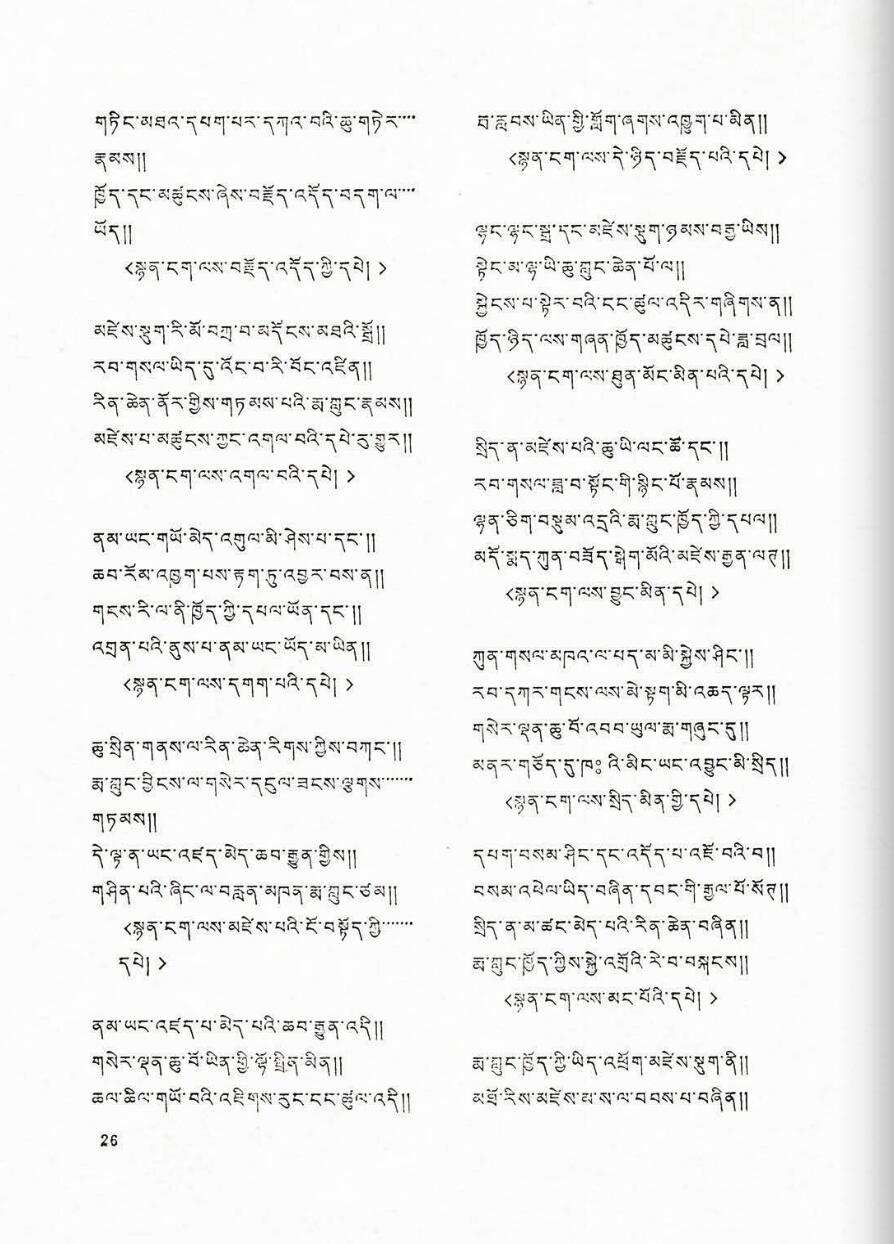 གཏིང་མཐའ་དཔག་པར་དཀའ་བའི་ཆུ་གཏེར་····
རྣམས།།
ཁྱོད་དང་མཚུངས་ཞེས་བརྗོད་འདོད་བདག་ལ་····
ཡོད།།
<སྙན་ངག་ལས་བརྗོད་འདོད་ཀྱི་དཔེ། >
མཛེས་སྡུག་རི་མོ་བཀྲ་བ་མདོངས་མཐའི་སྒྲོ།།
རབ་གསལ་ཡིད་དུ་འོང་བ་རི་བོང་འཛིན།།
རིན་ཆེན་ནོར་གྱིས་གཏམས་པའི་རྨ་ཀླུང་རྣམས།།
མཛེས་པ་མཚུངས་ཀྱང་འགལ་བའི་དཔེ་རུ་གྱུར།།
<སྙན་ངག་ལས་འགལ་བའི་དཔེ། >
ནམ་ཡང་གཡོ་མེད་འགུལ་མི་ཤེས་པ་དང་།།
ཆབ་རོམ་འཁྱགས་པས་རྟག་ཏུ་འབྱར་བས་ན།།
གངས་རི་ལ་ནི་ཁྱོད་ཀྱི་དཔལ་ཡོན་དང་།།
འགྲན་པའི་ནུས་པ་ནམ་ཡང་ཡོད་མ་ཡིན།།
<སྙན་ངག་ལས་དགག་པའི་དཔེ། >
ཆུ་སྲིན་གནས་ལ་རིན་ཆེན་རིགས་ཀྱིས་བཀང་།།
རྨ་ཀླུང་དབྱིངས་ལ་གསེར་དངུལ་ཟངས་ལྕགས་······
གཏམས།།
དེ་ལྟ་ན་ཡང་འཛད་མེད་ཆབ་རྒྱུན་གྱིས།།
གཤིན་པའི་ཞིང་ལ་བརླན་མཁན་རྨ་ཀླུང་ཙམ།།
<སྙན་ངག་ལས་མཛེས་པའི་ངོ་བསྟོད་ཀྱི་······
དཔེ། >
ནམ་ཡང་འཛད་པ་མེད་པའི་ཆབ་རྒྱུན་འདི།།
གསེར་ལྡན་ཆུ་བོ་ཡིན་གྱི་ལྷོ་སྤྲིན་མིན།།
ཆལ་ཆིལ་གཡོ་བའི་འཇིགས་རུང་ངང་ཚུལ་འདི།།
26
ཁྲ་རླབས་ཡིན་གྱི་གློག་ཞགས་འཁྱུག་པ་མིན།།
<སྙན་ངག་ལས་དེ་ཉིད་བརྗོད་པའི་དཔེ། >
ལྷང་ལྷང་སྒྲ་དང་མཛེས་སྡུག་ཉམས་བརྒྱ་ཡིས།།
སྟེང་མ་ལྟ་ཡི་ཆུ་ཀླུང་ཆེན་པོ་ལ།།
སྐྱེངས་པ་སྟེར་བའི་ངང་ཚུལ་འདིར་གཞིགས་ན།།
ཁྱོད་ཉིད་ལས་གཞན་ཁྱོད་མཚུངས་དཔེ་ཟླ་བྲལ།།
<སྙན་ངག་ལས་ཐུན་མོང་མིན་པའི་དཔེ། >
སྲིད་ན་མཛེས་པའི་ཆུ་ཡི་ལང་ཚོ་དང་།།
རབ་གསལ་ཟླ་བ་སྟོང་གི་སྙིང་པོ་རྣམས།།
ལྷན་ཅིག་བསྡུམ་འདྲའི་རྨ་ཀླུང་ཁྱོད་ཀྱི་དཔལ།།
མདོ་སྨད་ཀུན་བཟོད་སྒེག་མོའི་མཛེས་རྒྱན་ལགས།།
<སྙན་ངག་ལས་བྱུང་མིན་དཔེ། >
ཀུན་གསལ་མཁའ་ལ་པད་མ་མི་སྐྱེས་ཤིང་།།
རབ་དཀར་གངས་ལས་མེ་ལྕེ་མི་འཆར་ལྟར།།
གསེར་ལྡན་ཆུ་བོ་འབབ་ཡུལ་རྨ་གཞུང་དུ།།
མནར་གཅོད་དུ་ཁཿ འི་མིང་ཡང་འབྱུང་མི་སྲིད།།
<སྙན་ངག་ལས་སྲིད་མིན་གྱི་དཔེ། >
དཔག་བསམ་ཤིང་དང་འདོད་པ་འཇོ་བའི་བ།།
བསམ་འཕེལ་ཡིད་བཞིན་དབང་གི་རྒྱལ་པོ་སོགས།།
སྲིད་ན་མ་ཚང་མེད་པའི་རིན་ཆེན་བཞིན།།
རྨ་ཀླུང་ཁྱོད་ཀྱིས་སྐྱེ་འགྲོའི་རེ་བ་བསྐངས།།
<སྙན་ངག་ལས་མང་པོའི་དཔེ། >
རྨ་ཀླུང་ཁྱོད་ཀྱི་ཡིད་འཕྲོག་མཛེས་སྡུག་ནི།།
མཐོ་རིས་མཛེས་མ་ས་ལ་བབས་པ་བཞིན།།